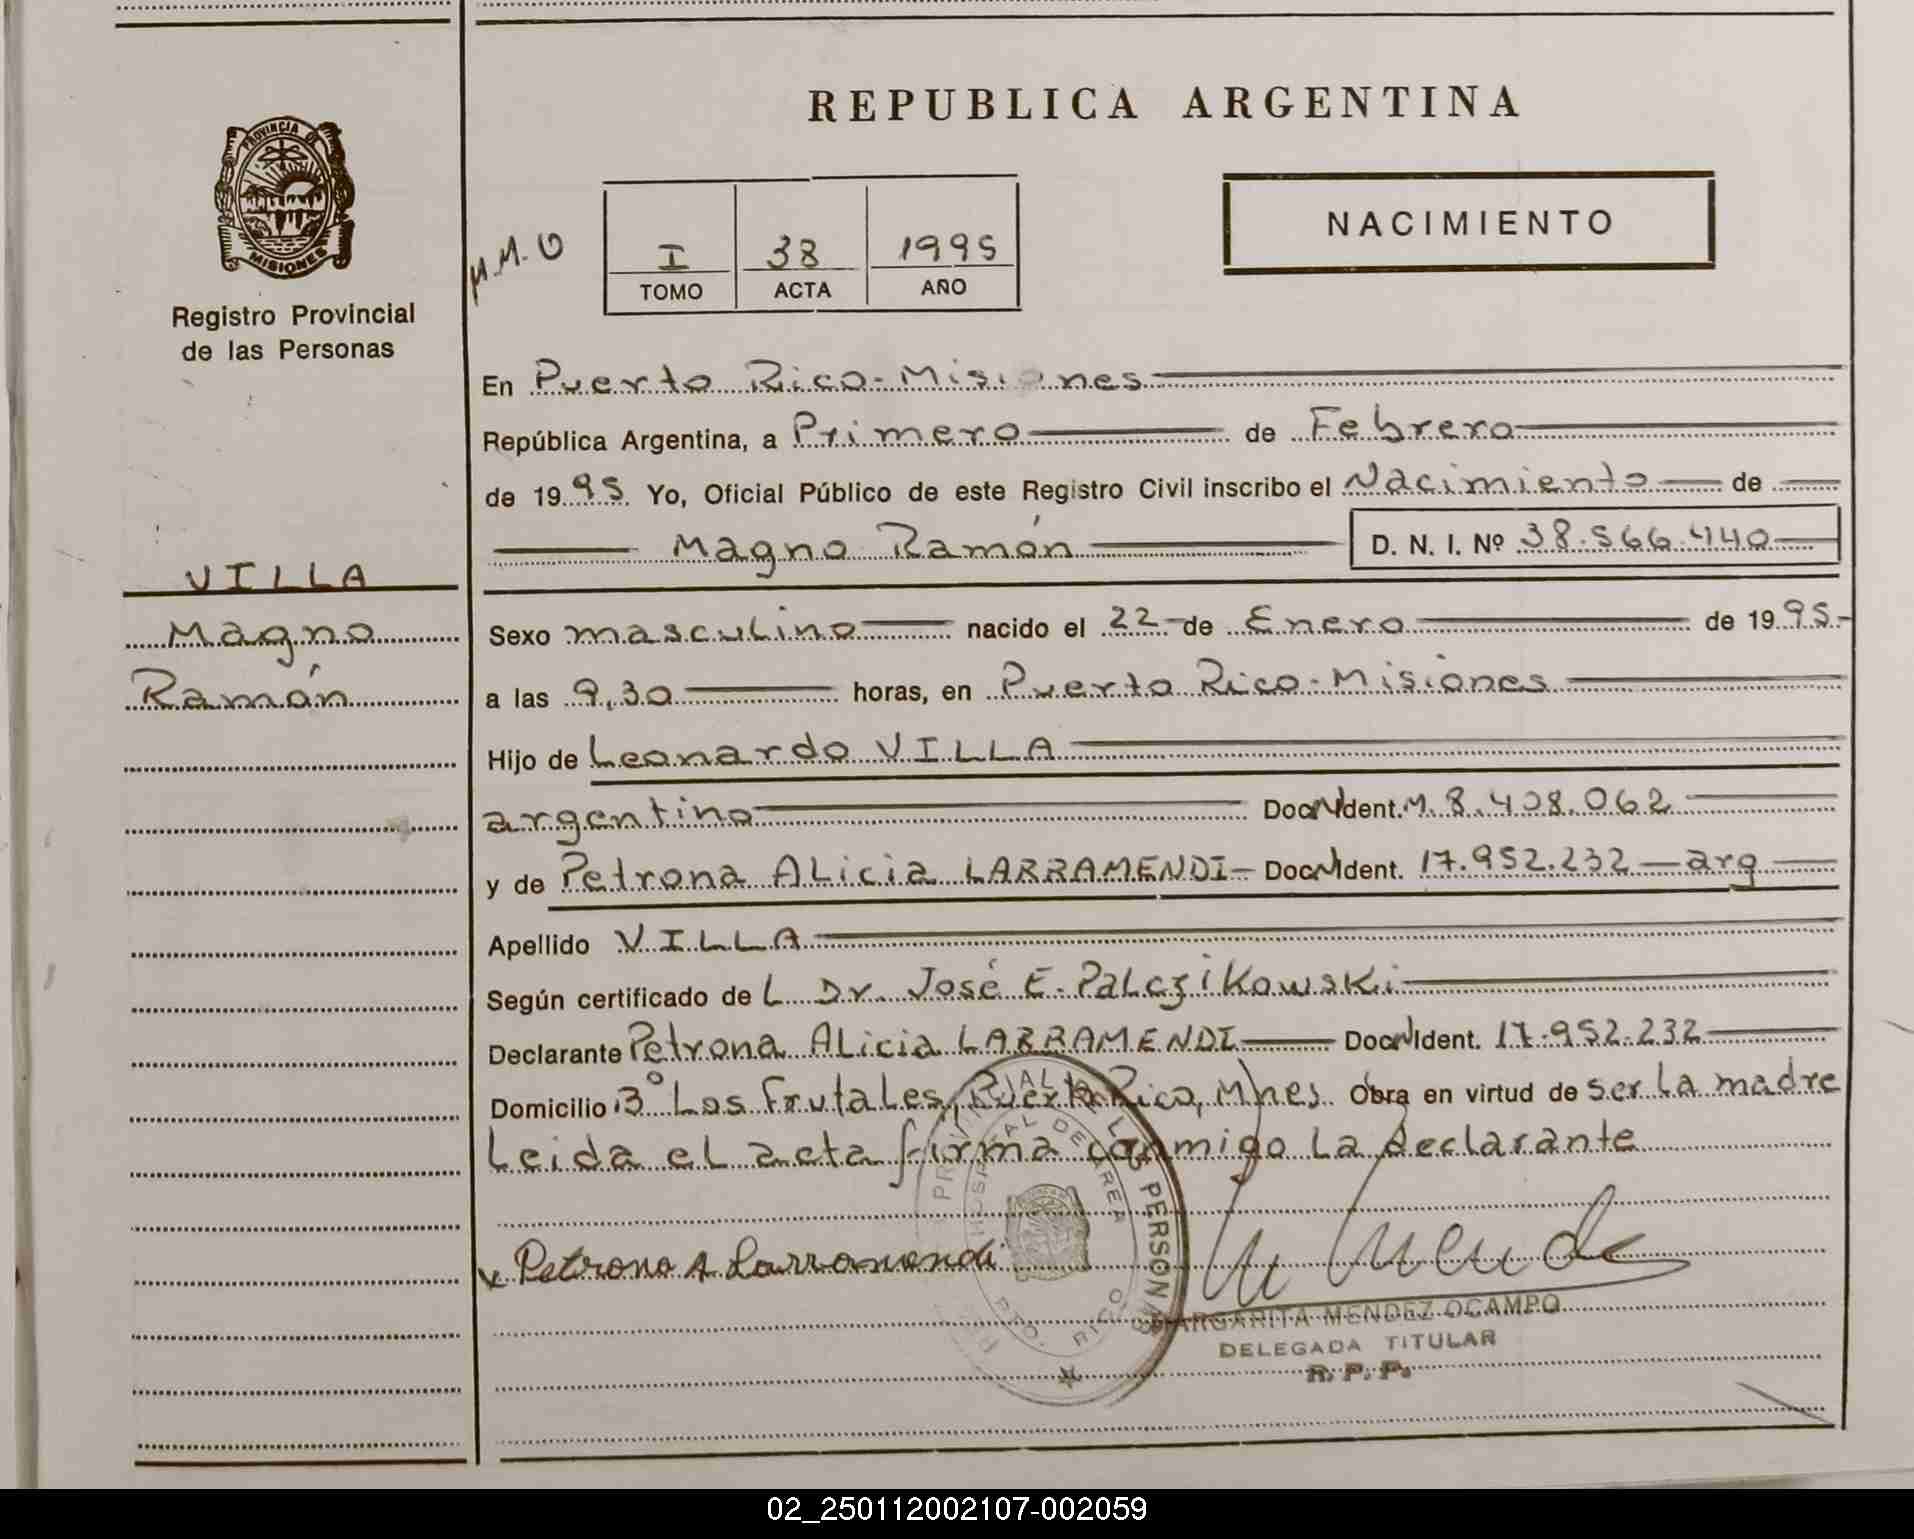 REPUBLICA ARGENTINA
PROVINCIA DE
MISIONES
Registro Provincial
de las Personas
M.M.O
I 38 1995
TOMO ACTA AÑO
NACIMIENTO
En Puerto Rico-Misiones
República Argentina, a Primero de Febrero
de 1995 Yo, Oficial Público de este Registro Civil inscribo el Nacimiento de
Magno Ramón D. N. I. Nº 38.566.440
VILLA
Magno
Ramón
Sexo masculino nacido el 22 de Enero de 1995-
a las 9,30 horas, en Puerto Rico-Misiones
Hijo de Leonardo VILLA
argentino Doc Ident. M. 8.408.062
y de Petrona Alicia LARRAMENDI- Doc Ident. 17.952.232 - arg
Apellido VILLA
Según certificado de L Dr. José E. Palczikowski
Declarante Petrona Alicia LARRAMENDI Doc Ident. 17.952.232
Domicilio Bº Los Frutales, Puerto Rico, Mnes Obra en virtud de ser la madre
Leida el acta firma conmigo la declarante
x Petrona A Larramendi
HOSPITAL DE AREA
PTO. RICO
MARGARITA MENDEZ OCAMPO
DELEGADA TITULAR
R. P. P.
02_250112002107-002059